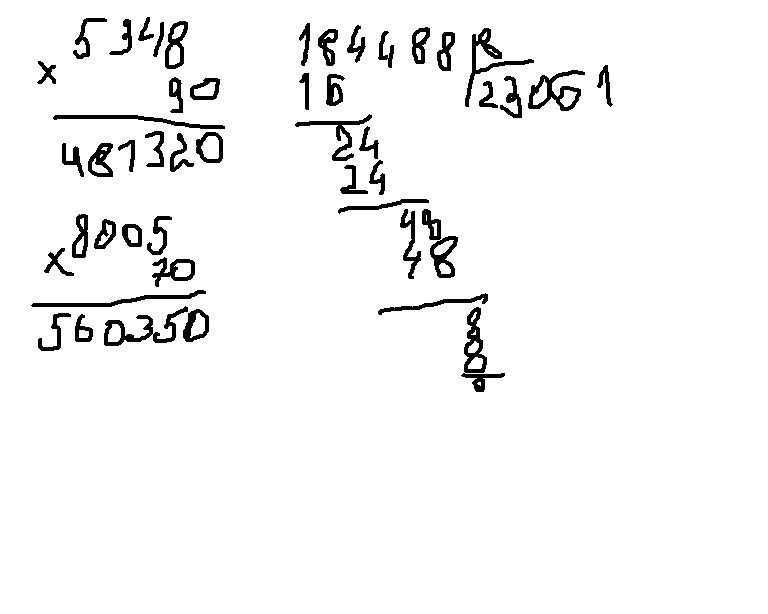 5348
× 90
481320
8005
× 70
560350
184488 8
16 23061
24
24
48
48
8
8
0